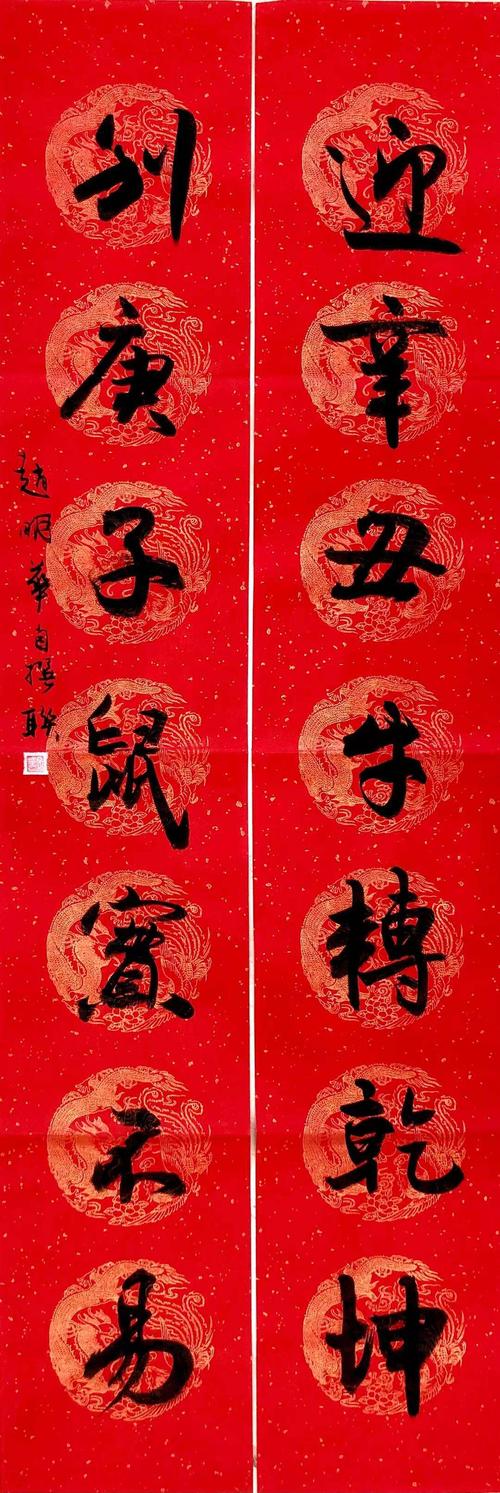 迎辛丑牛轉乾坤
别庚子鼠實不易
趙明華自撰聯